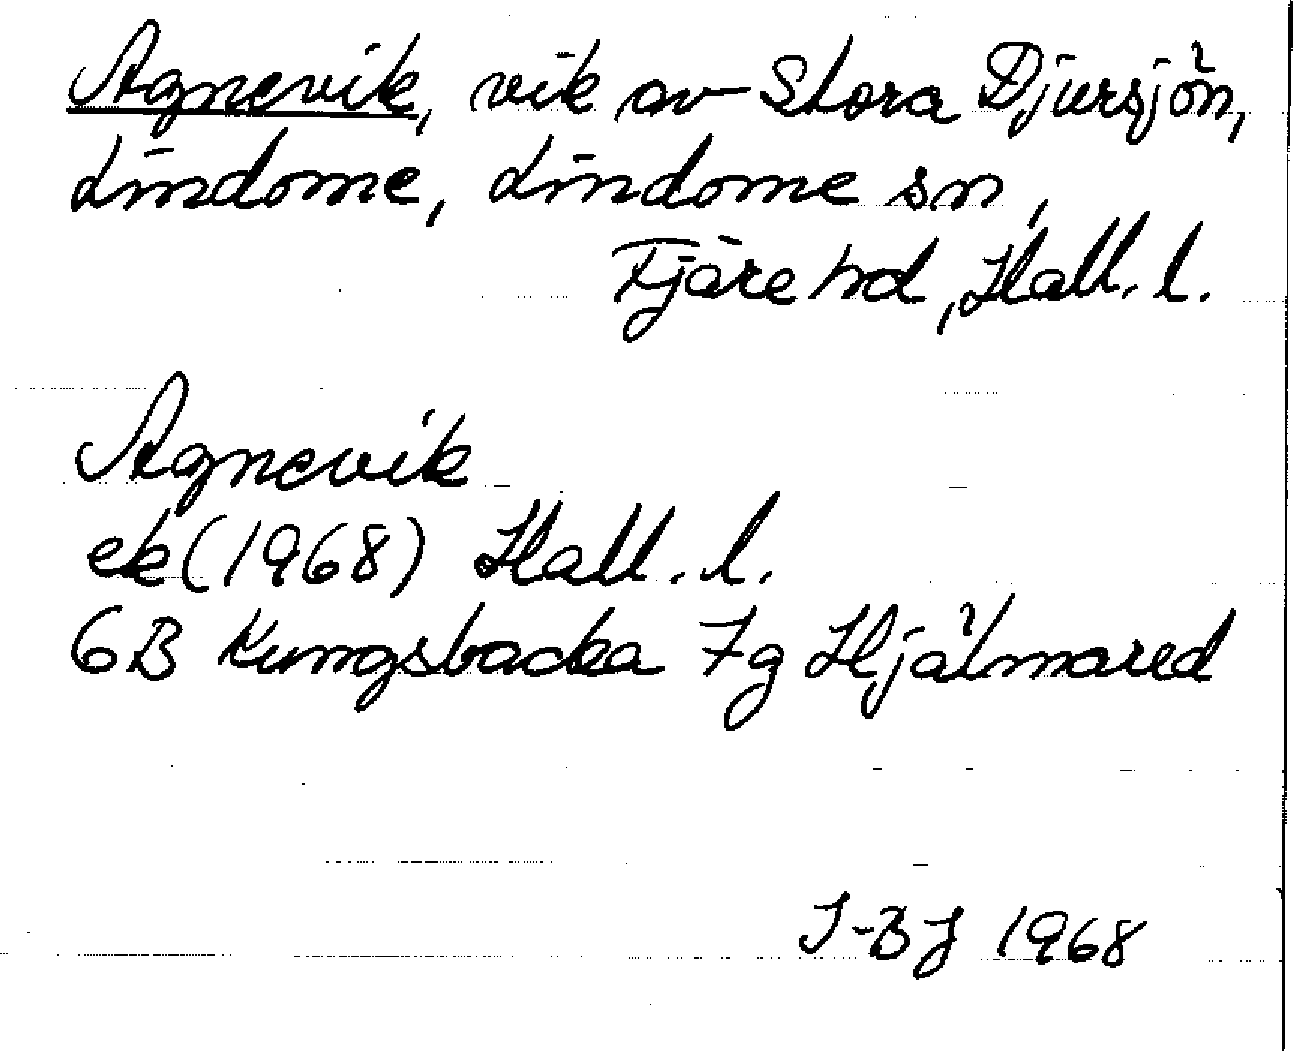 Agnevik, vik av Stora Djursjön,
Lindome, Lindome sn,
Fjäre hd, Hall. l.
Agnevik
ek (1968) Hall. l.
6B Kungsbacka 7g Hjälmared
I-BJ 1968